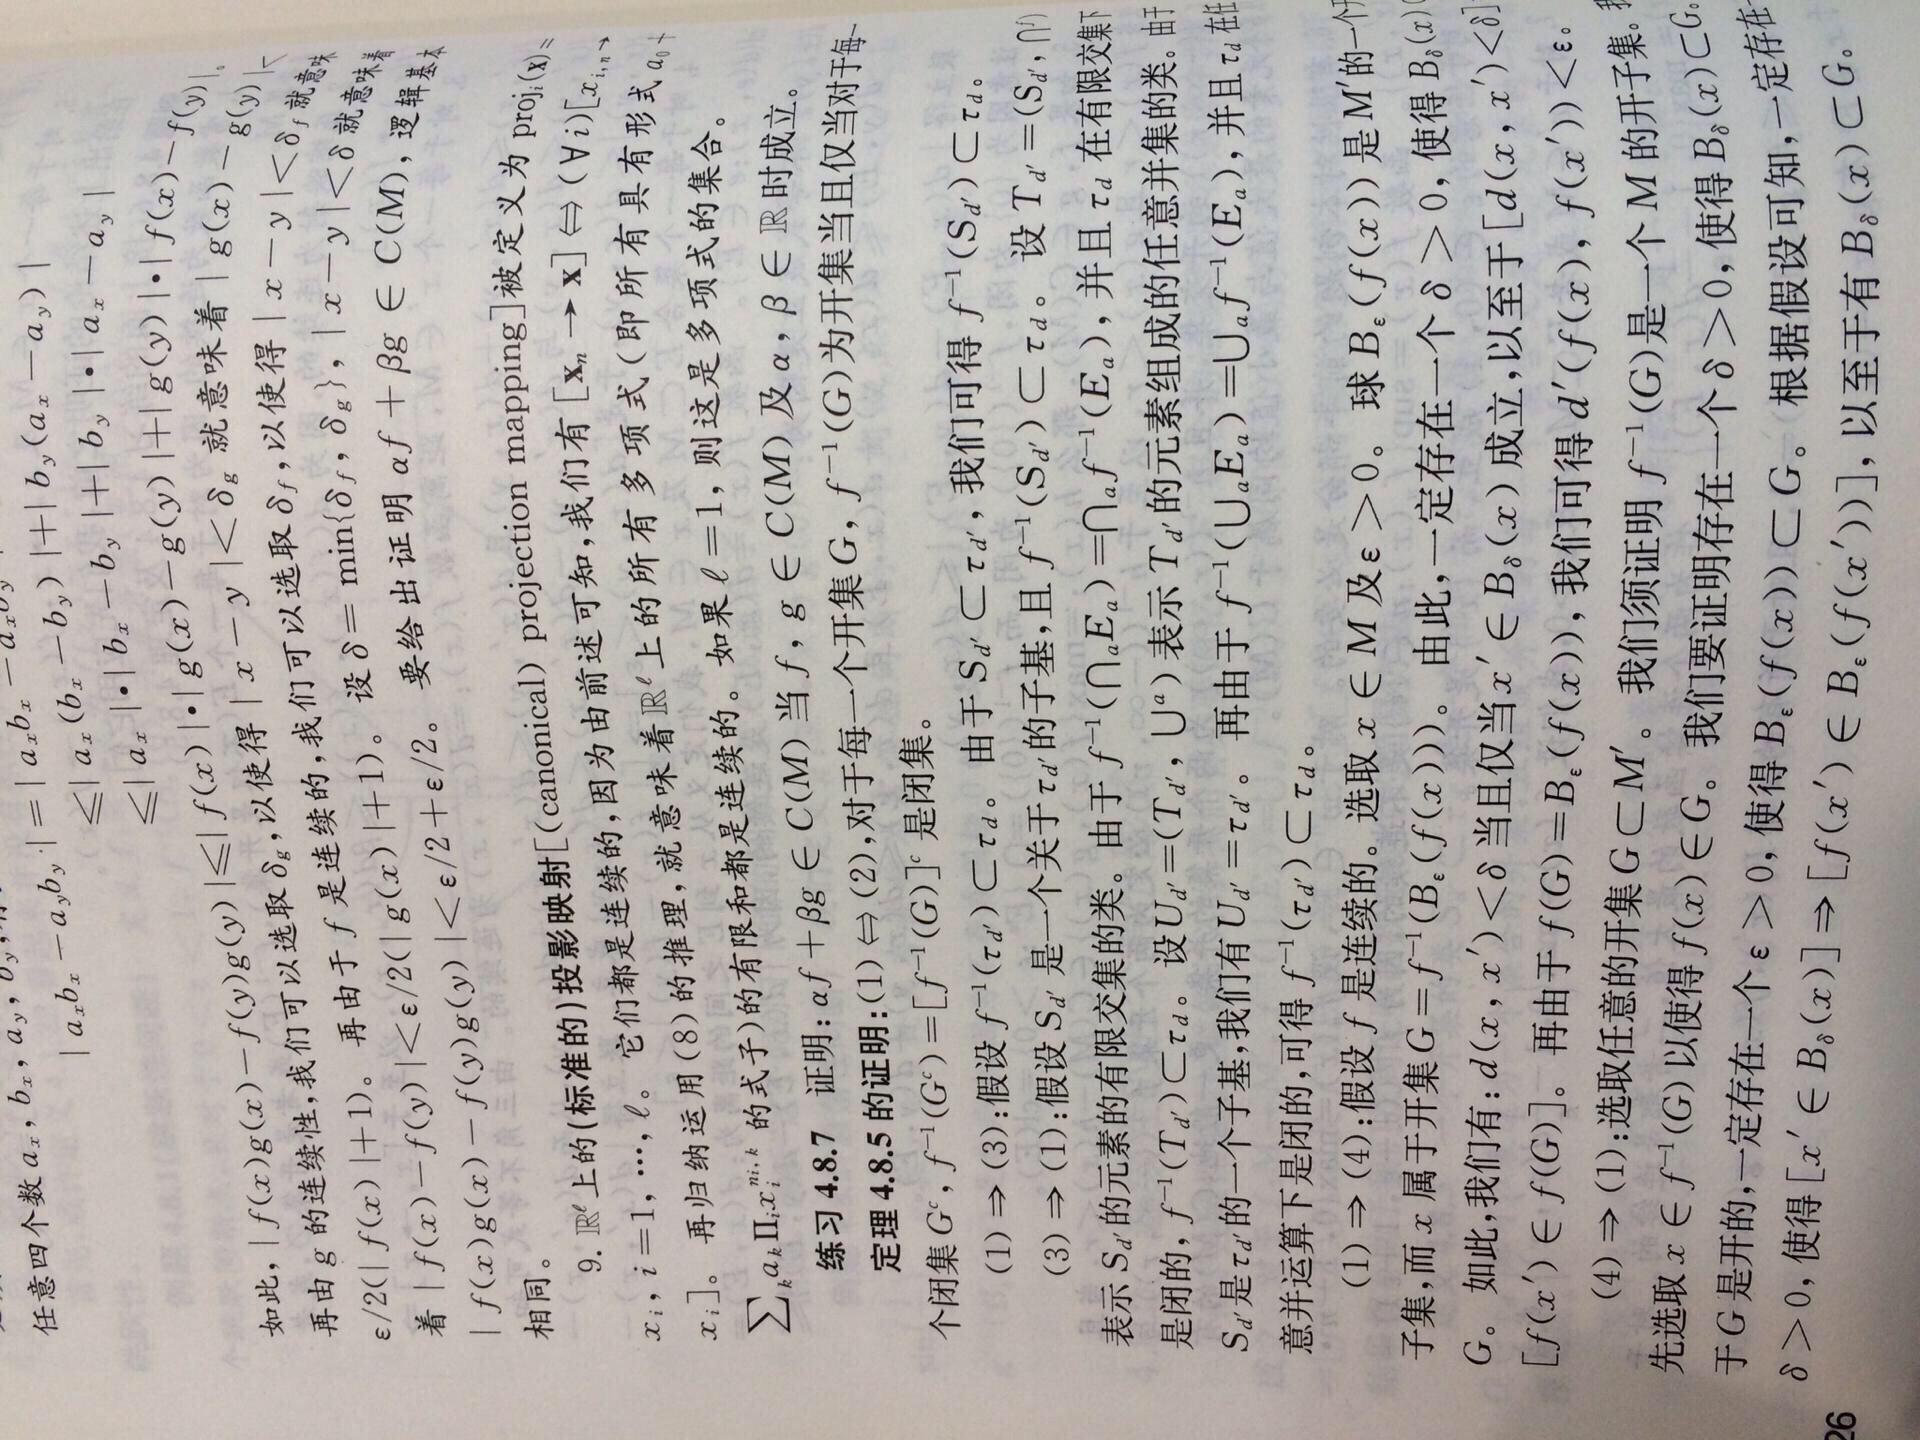 任意四个数 a_x, b_x, a_y, b_y,
|a_x b_x − a_y b_y| = |a_x b_x − a_x b_y| + |b_y(a_x − a_y)|
≤|a_x(b_x − b_y)|+|b_y(a_x − a_y)|
≤|a_x|•|b_x − b_y|+|b_y|•|a_x − a_y|
如此,|f(x)g(x)−f(y)g(y)|≤|f(x)|•|g(x)−g(y)|+|g(y)|•|f(x)−f(y)|。
再由 g 的连续性,我们可以选取 δ_g,以使得 |x−y|<δ_g 就意味着 |g(x)−g(y)|<
ε/2(|f(x)|+1)。 再由于 f 是连续的,我们可以选取 δ_f,以使得 |x−y|<δ_f 就意味
着 |f(x)−f(y)|<ε/2(|g(x)|+1)。 设 δ = min{δ_f, δ_g}, |x−y|<δ 就意味着
|f(x)g(x)−f(y)g(y)|<ε/2+ε/2。 要给出证明 αf + βg ∈ C(M),逻辑基本
相同。
9. ℝ^ℓ 上的(标准的)投影映射[(canonical) projection mapping]被定义为 proj_i(x)=
x_i, i=1, …, ℓ。 它们都是连续的,因为由前述可知,我们有 [x_n → x] ⇔ (∀i)[x_{i,n} →
x_i]。 再归纳运用(8)的推理,就意味着 ℝ^ℓ 上的所有多项式(即所有具有形式 a_0 +
∑_k a_k Π_i x_i^{m_{i,k}} 的式子)的有限和都是连续的。 如果 ℓ=1,则这是多项式的集合。
练习 4.8.7 证明: αf + βg ∈ C(M) 当 f, g ∈ C(M) 及 α, β ∈ ℝ 时成立。
定理 4.8.5 的证明:(1) ⇔ (2),对于每一个开集 G, f⁻¹(G) 为开集当且仅当对于每一
个闭集 G^c, f⁻¹(G^c) = [f⁻¹(G)]^c 是闭集。
(1) ⇒ (3):假设 f⁻¹(τ_{d′}) ⊂ τ_d。 由于 S_{d′} ⊂ τ_{d′},我们可得 f⁻¹(S_{d′}) ⊂ τ_d。
(3) ⇒ (1):假设 S_{d′} 是一个关于 τ_{d′} 的子基,且 f⁻¹(S_{d′}) ⊂ τ_d。 设 T_{d′} = (S_{d′}, ∩^f)
表示 S_{d′} 的元素的有限交集的类。 由于 f⁻¹(∩_a E_a) = ∩_a f⁻¹(E_a),并且 τ_d 在有限交集下
是闭的, f⁻¹(T_{d′}) ⊂ τ_d。 设 U_{d′} = (T_{d′}, ∪^a) 表示 T_{d′} 的元素组成的任意并集的类。由于
S_{d′} 是 τ_{d′} 的一个子基,我们有 U_{d′} = τ_{d′}。 再由于 f⁻¹(∪_a E_a) = ∪_a f⁻¹(E_a),并且 τ_d 在任
意并运算下是闭的,可得 f⁻¹(τ_{d′}) ⊂ τ_d。
(1) ⇒ (4):假设 f 是连续的。选取 x ∈ M 及 ε > 0。 球 B_ε(f(x)) 是 M′ 的一个开
子集,而 x 属于开集 G = f⁻¹(B_ε(f(x)))。 由此,一定存在一个 δ > 0,使得 B_δ(x) ⊂
G。 如此,我们有: d(x, x′) < δ 当且仅当 x′ ∈ B_δ(x) 成立,以至于 [d(x, x′) < δ]
[f(x′) ∈ f(G)]。 再由于 f(G) = B_ε(f(x)),我们可得 d′(f(x), f(x′)) < ε。
(4) ⇒ (1):选取任意的开集 G ⊂ M′。 我们须证明 f⁻¹(G) 是一个 M 的开子集。
先选取 x ∈ f⁻¹(G) 以使得 f(x) ∈ G。 我们要证明存在一个 δ > 0,使得 B_δ(x) ⊂ G。
于 G 是开的,一定存在一个 ε > 0,使得 B_ε(f(x)) ⊂ G。 根据假设可知,一定存在
δ > 0,使得 [x′ ∈ B_δ(x)] ⇒ [f(x′) ∈ B_ε(f(x′))],以至于有 B_δ(x) ⊂ G。
26